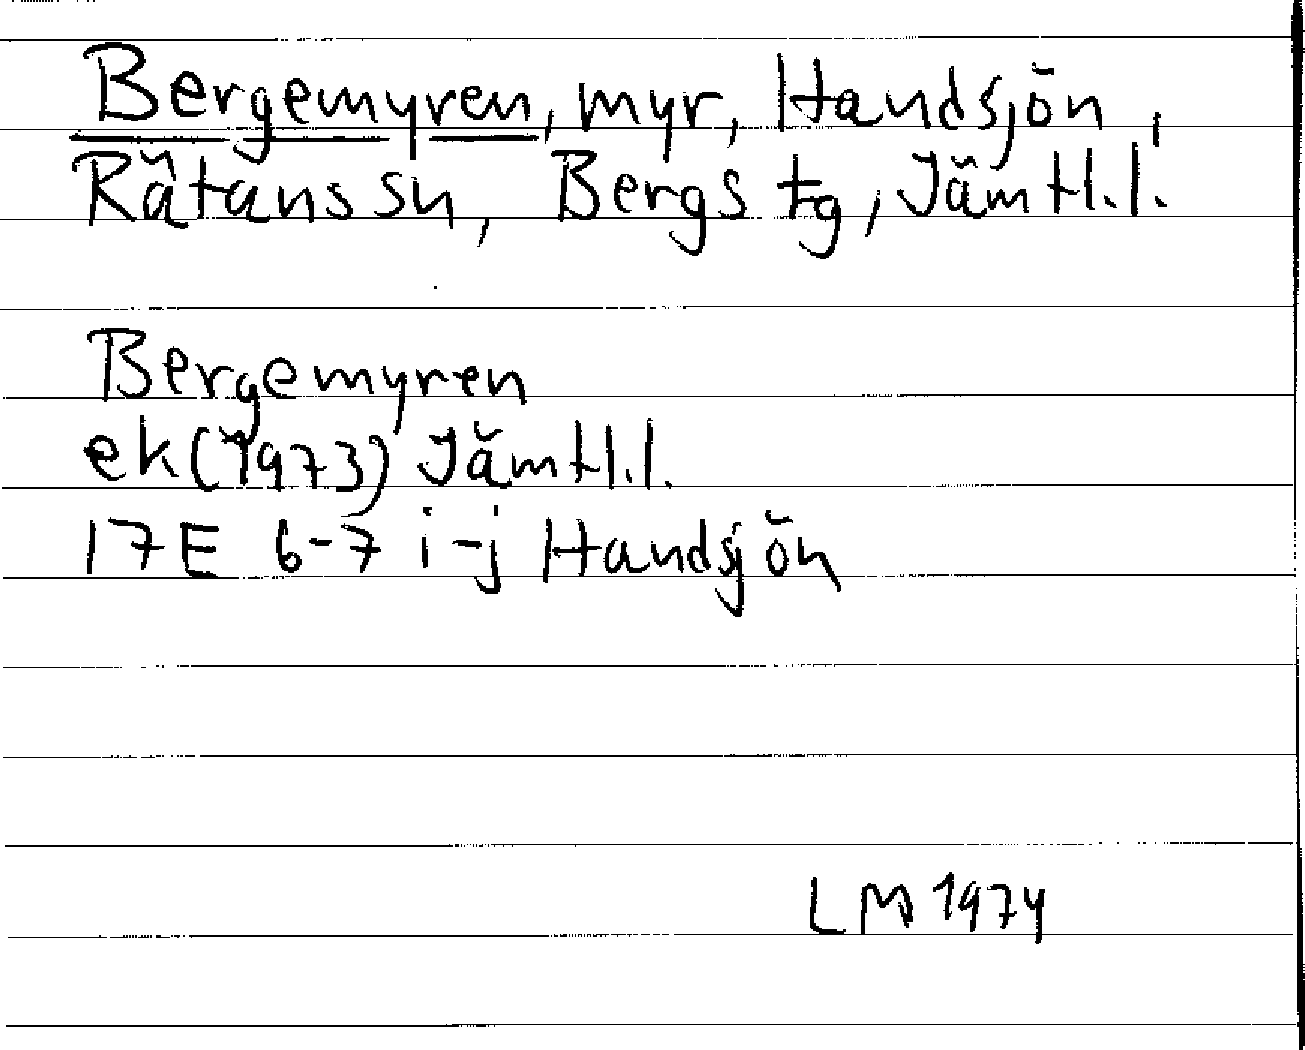 Bergemyren, myr, Handsjön,
Rätans sn, Bergs tg, Jämtl.l.
Bergemyren
ek (1973) Jämtl.l.
17E 6-7 i-j Handsjön
LM 1974